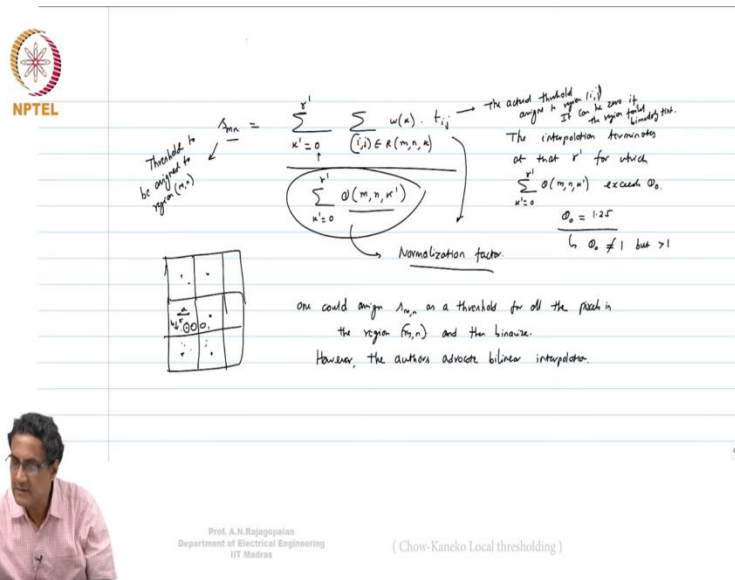 NPTEL
s_mn = \frac{\sum_{κ'=0}^{r'} \sum_{(i,j) ∈ R(m,n,κ)} w(κ) . t_ij}{\sum_{κ'=0}^{r'} Θ(m,n,κ')}
Threshold to
be assigned to
region (m,n)
The actual threshold
assigned to region (i,j)
It can be zero if
the region failed
bimodality test.
The interpolation terminates
at that r' for which
\sum_{κ'=0}^{r'} Θ(m,n,κ') exceeds Θ₀.
Θ₀ = 1.25
↳ Θ₀ ≠ 1 but >1
Normalization factor.
one could assign s_m,n as a threshold for all the pixels in
the region (m,n) and then binarize.
However, the authors advocate bilinear interpolation.
Prof. A.N.Rajagopalan
Department of Electrical Engineering
IIT Madras
( Chow-Kaneko Local thresholding )